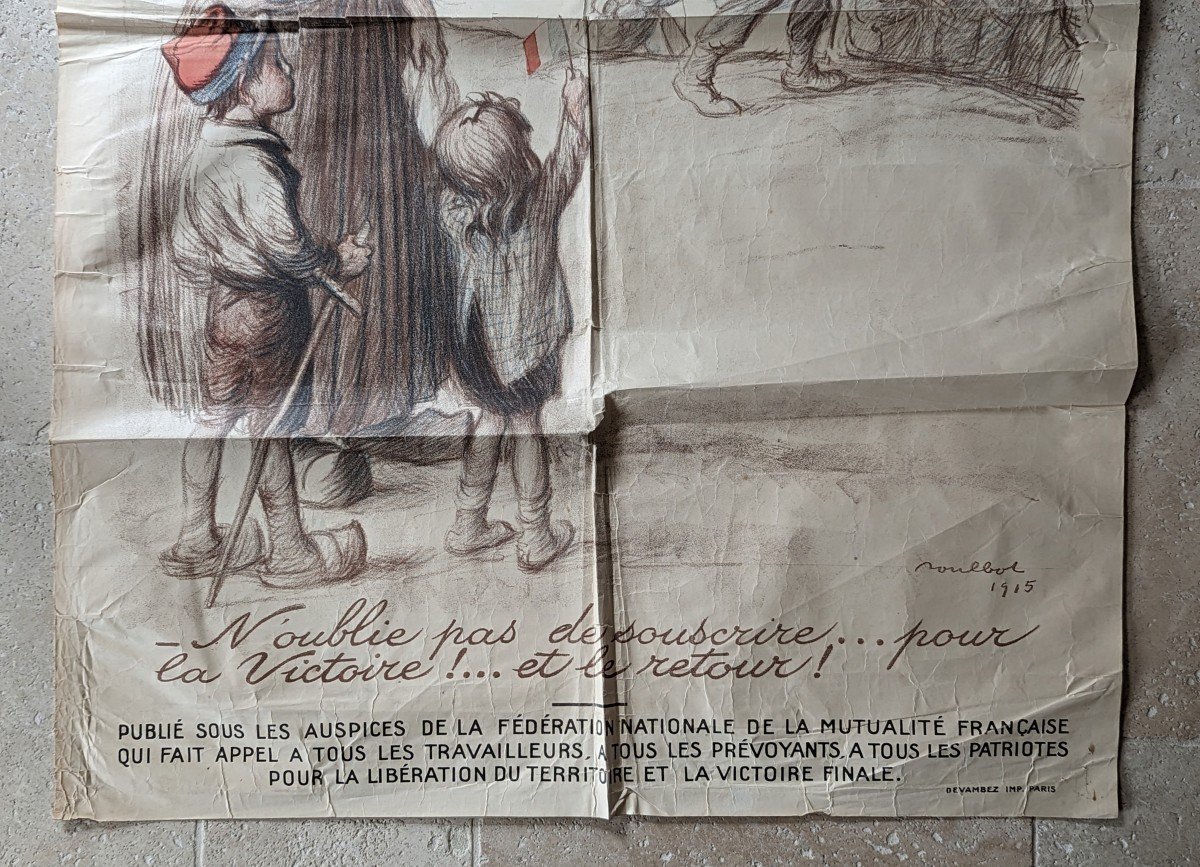 Poulbot
1915
— N'oublie pas de souscrire... pour
la Victoire !... et le retour !
PUBLIÉ SOUS LES AUSPICES DE LA FÉDÉRATION NATIONALE DE LA MUTUALITÉ FRANÇAISE
QUI FAIT APPEL A TOUS LES TRAVAILLEURS, A TOUS LES PRÉVOYANTS, A TOUS LES PATRIOTES
POUR LA LIBÉRATION DU TERRITOIRE ET LA VICTOIRE FINALE.
DEVAMBEZ IMP. PARIS